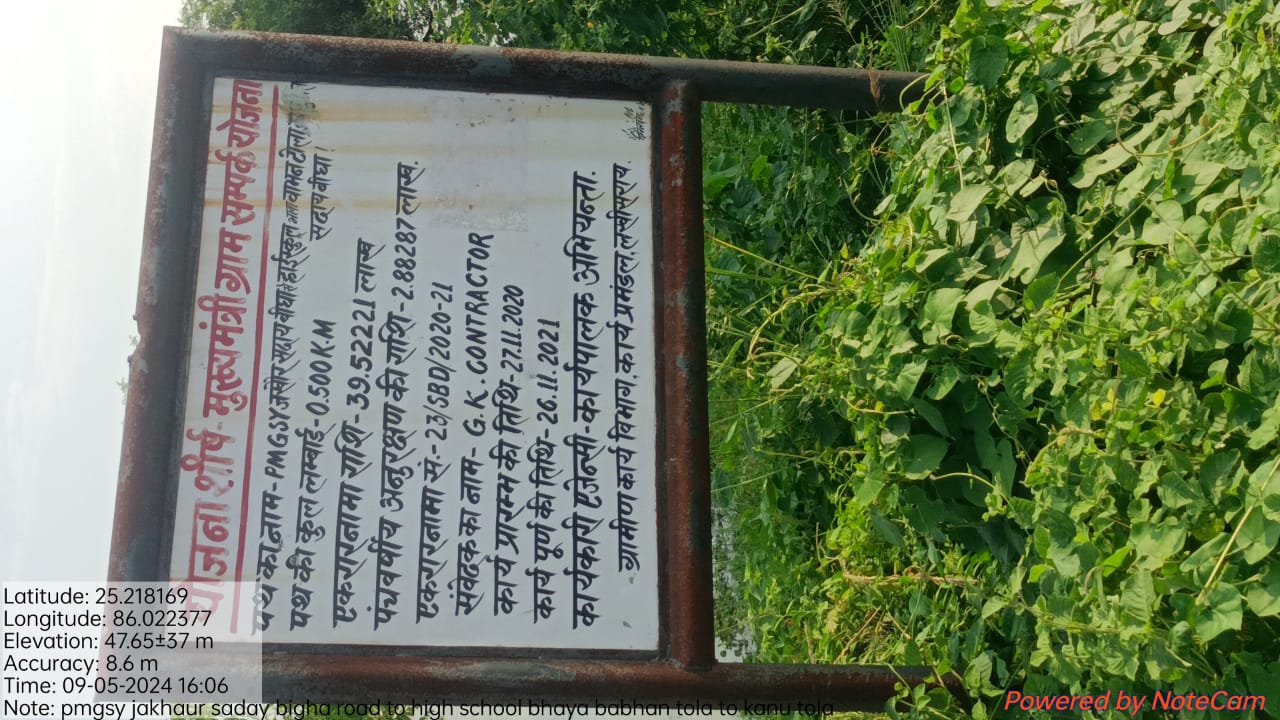 योजना शीर्ष- मुख्यमंत्री ग्राम सम्पर्क योजना
पथ का नाम- PMGSY जखौर सदाय बीघा से हाईस्कूल भाया बाभन टोला
सदाय बीघा।
पथ की कुल लम्बाई- 0.500K.M
एकरारनामा राशि- 39.52221 लाख
पंचवर्षीय अनुरक्षण की राशि- 2.88287 लाख.
एकरारनामा सं.- 23/SBD/2020-21
संवेदक का नाम- G.K. CONTRACTOR
कार्य प्रारम्भ की तिथि- 27.11.2020
कार्य पूर्ण की तिथि- 26.11.2021
कार्यकारी एजेन्सी- कार्यपालक अभियन्ता.
ग्रामीण कार्य विभाग, कार्य प्रमंडल, लखीसराय.
Latitude: 25.218169
Longitude: 86.022377
Elevation: 47.65±37 m
Accuracy: 8.6 m
Time: 09-05-2024 16:06
Note: pmgsy jakhaur saday bigha road to high school bhaya babhan tola to kanu tola
Powered by NoteCam